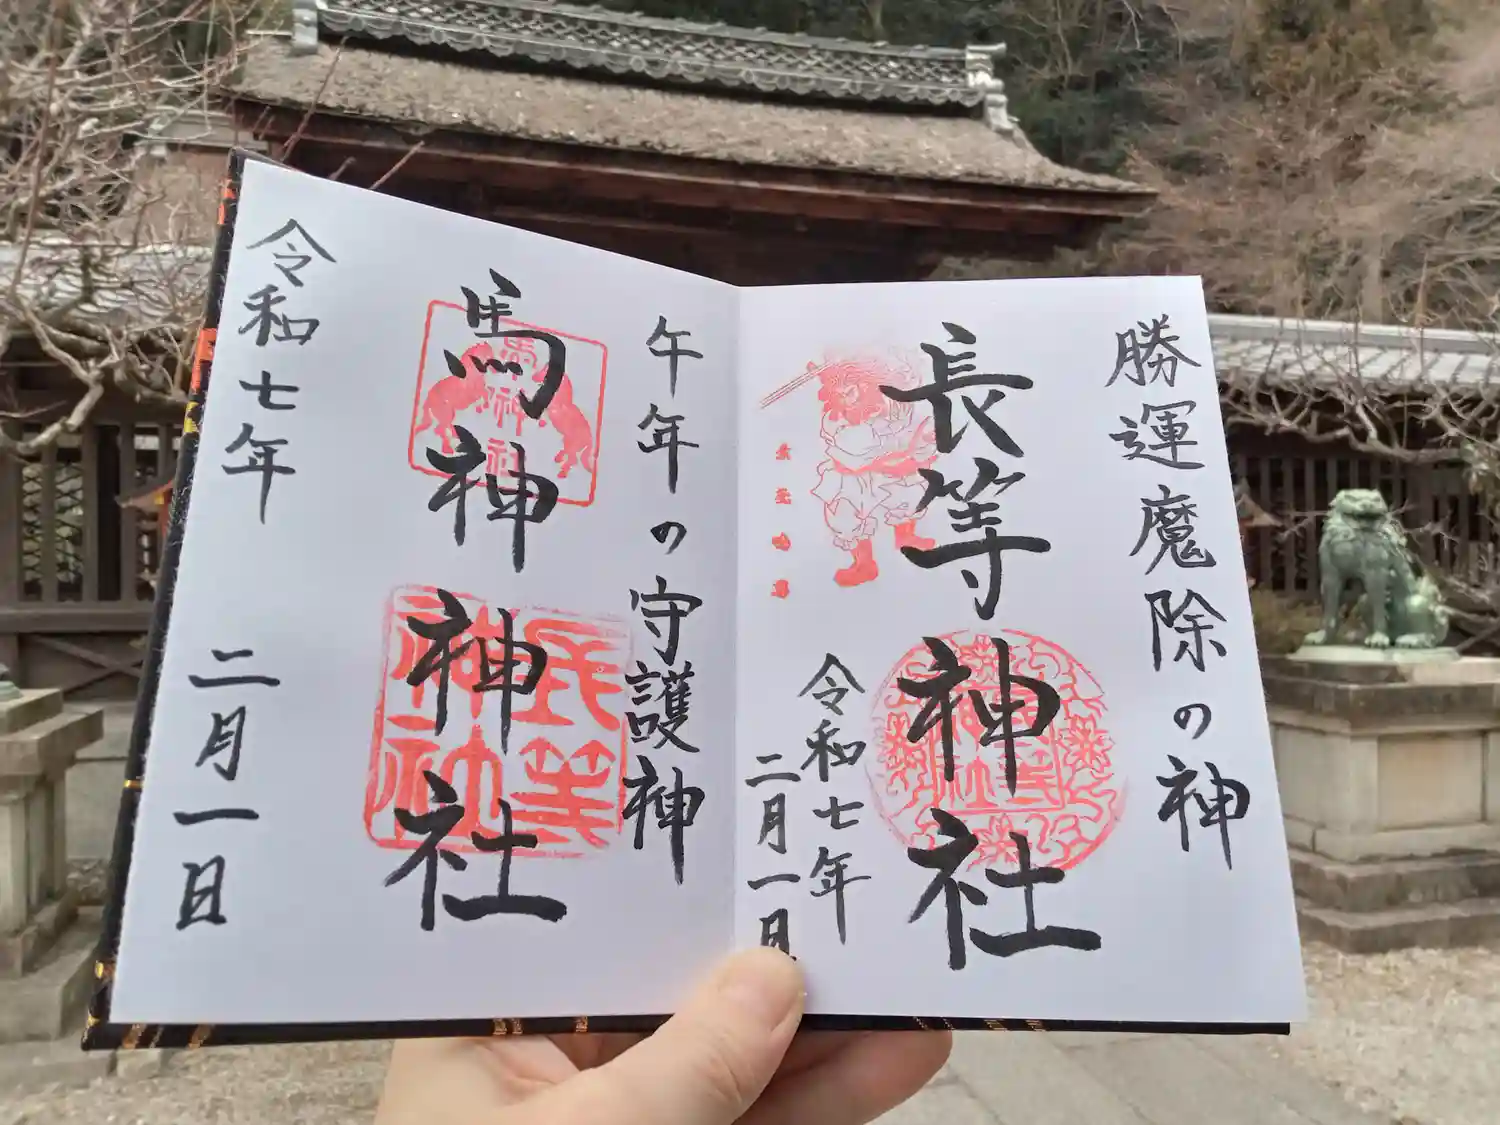 勝運魔除の神
長等神社
令和七年
二月一日
午年の守護神
馬神神社
馬神
神社
長等
神社
令和七年
二月一日